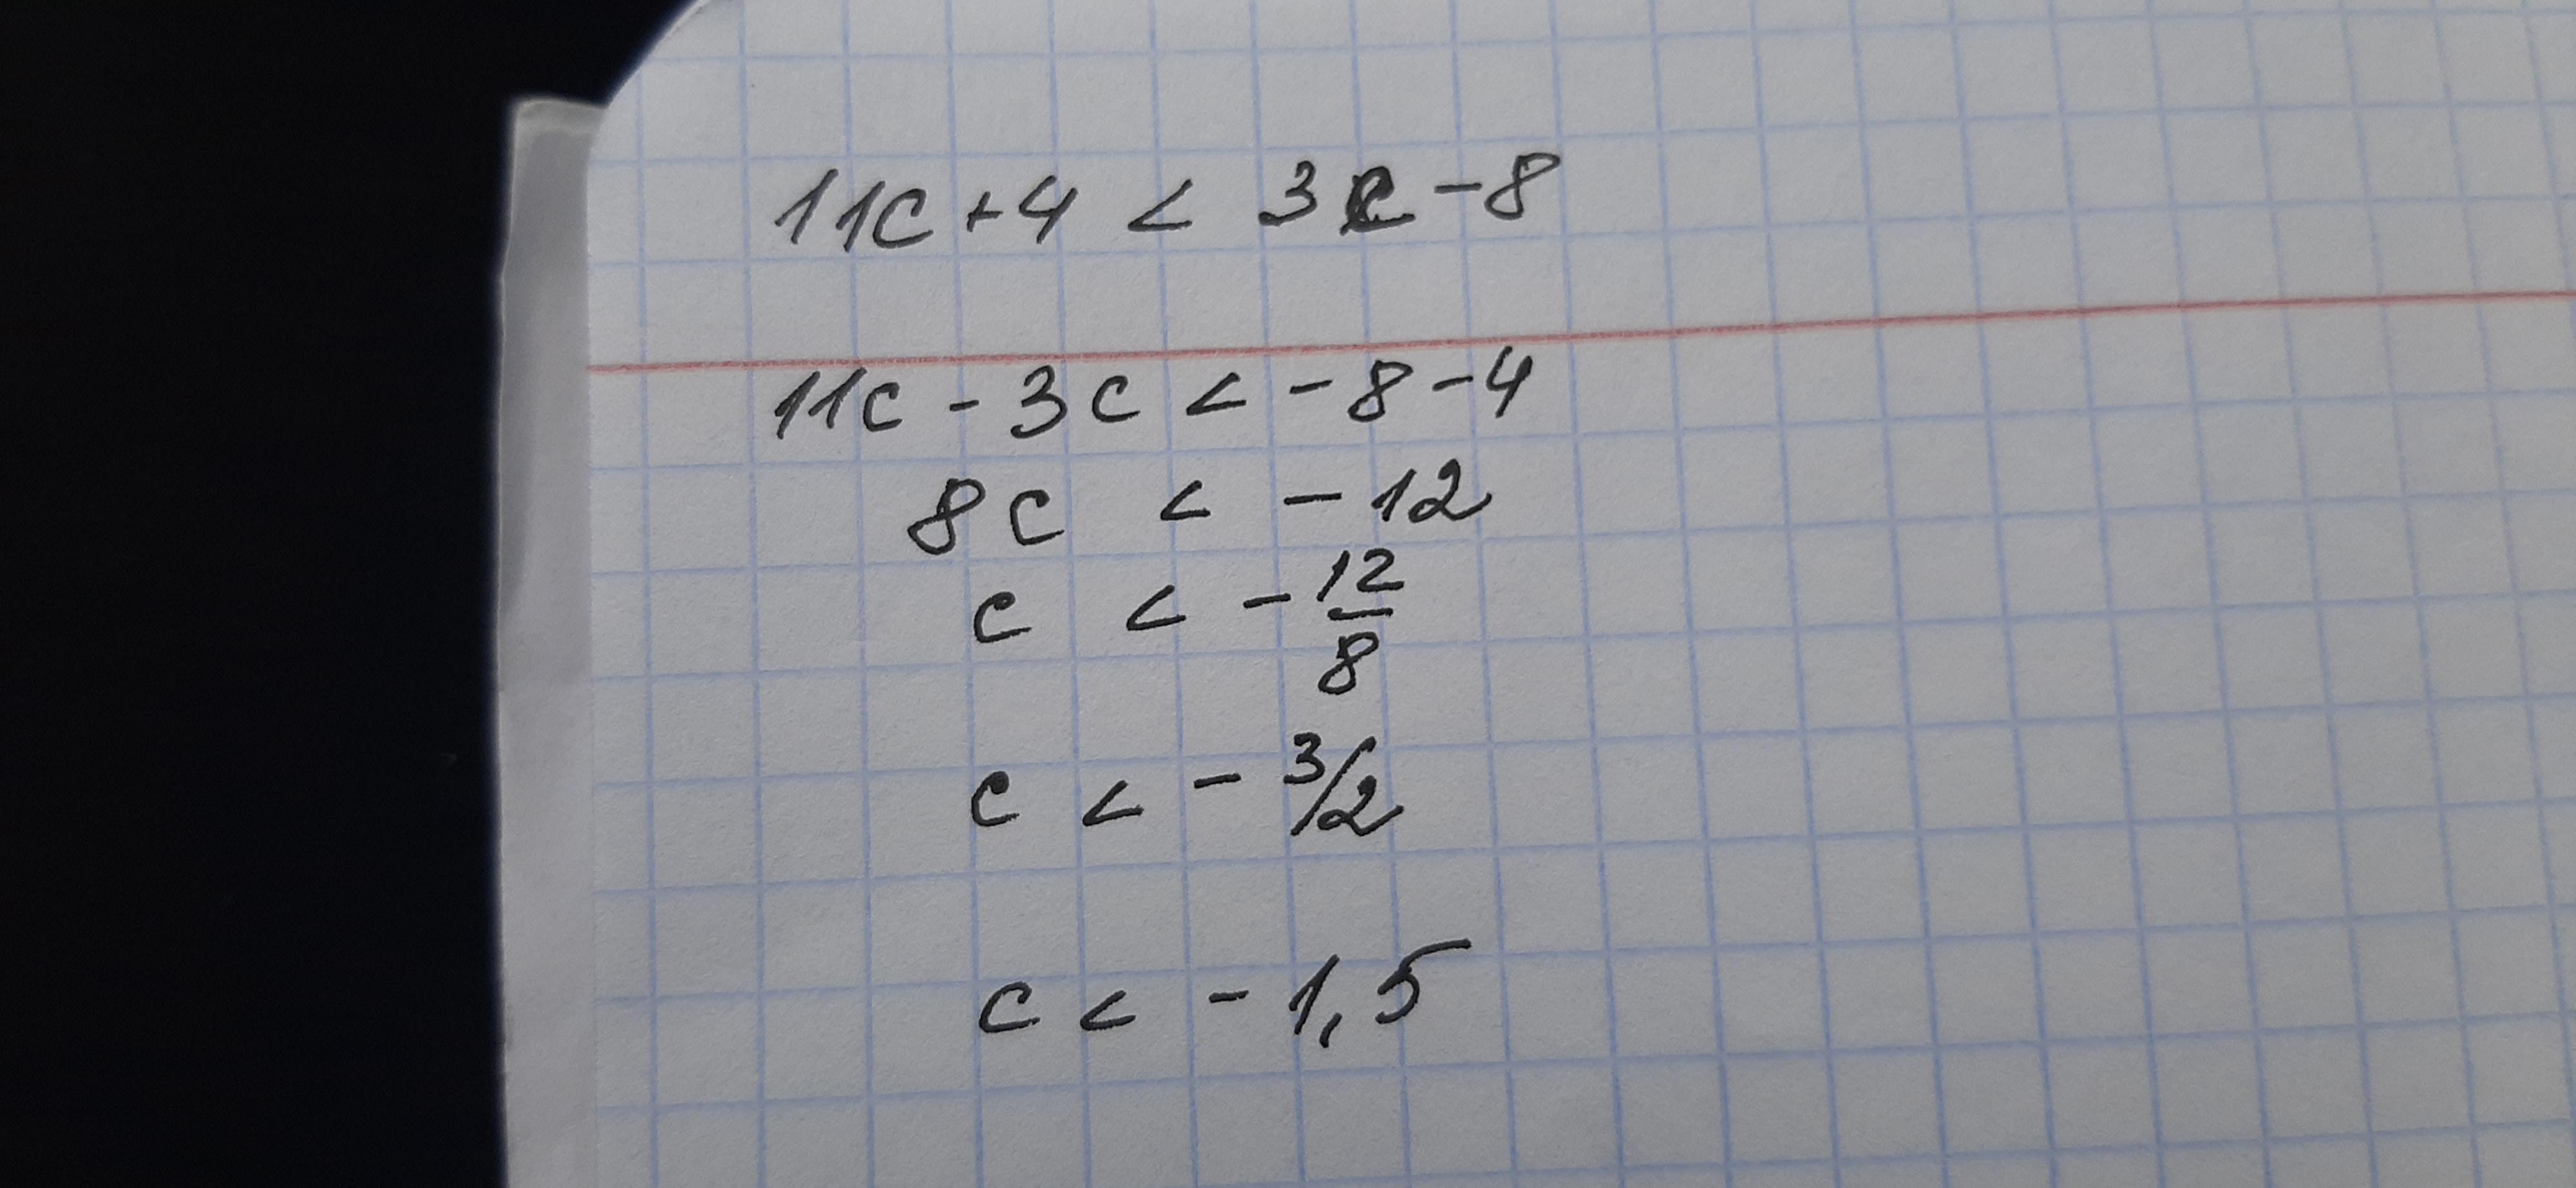 11c+4 < 3c-8
11c - 3c < -8-4
8c < -12
c < -12/8
c < -3/2
c < -1,5